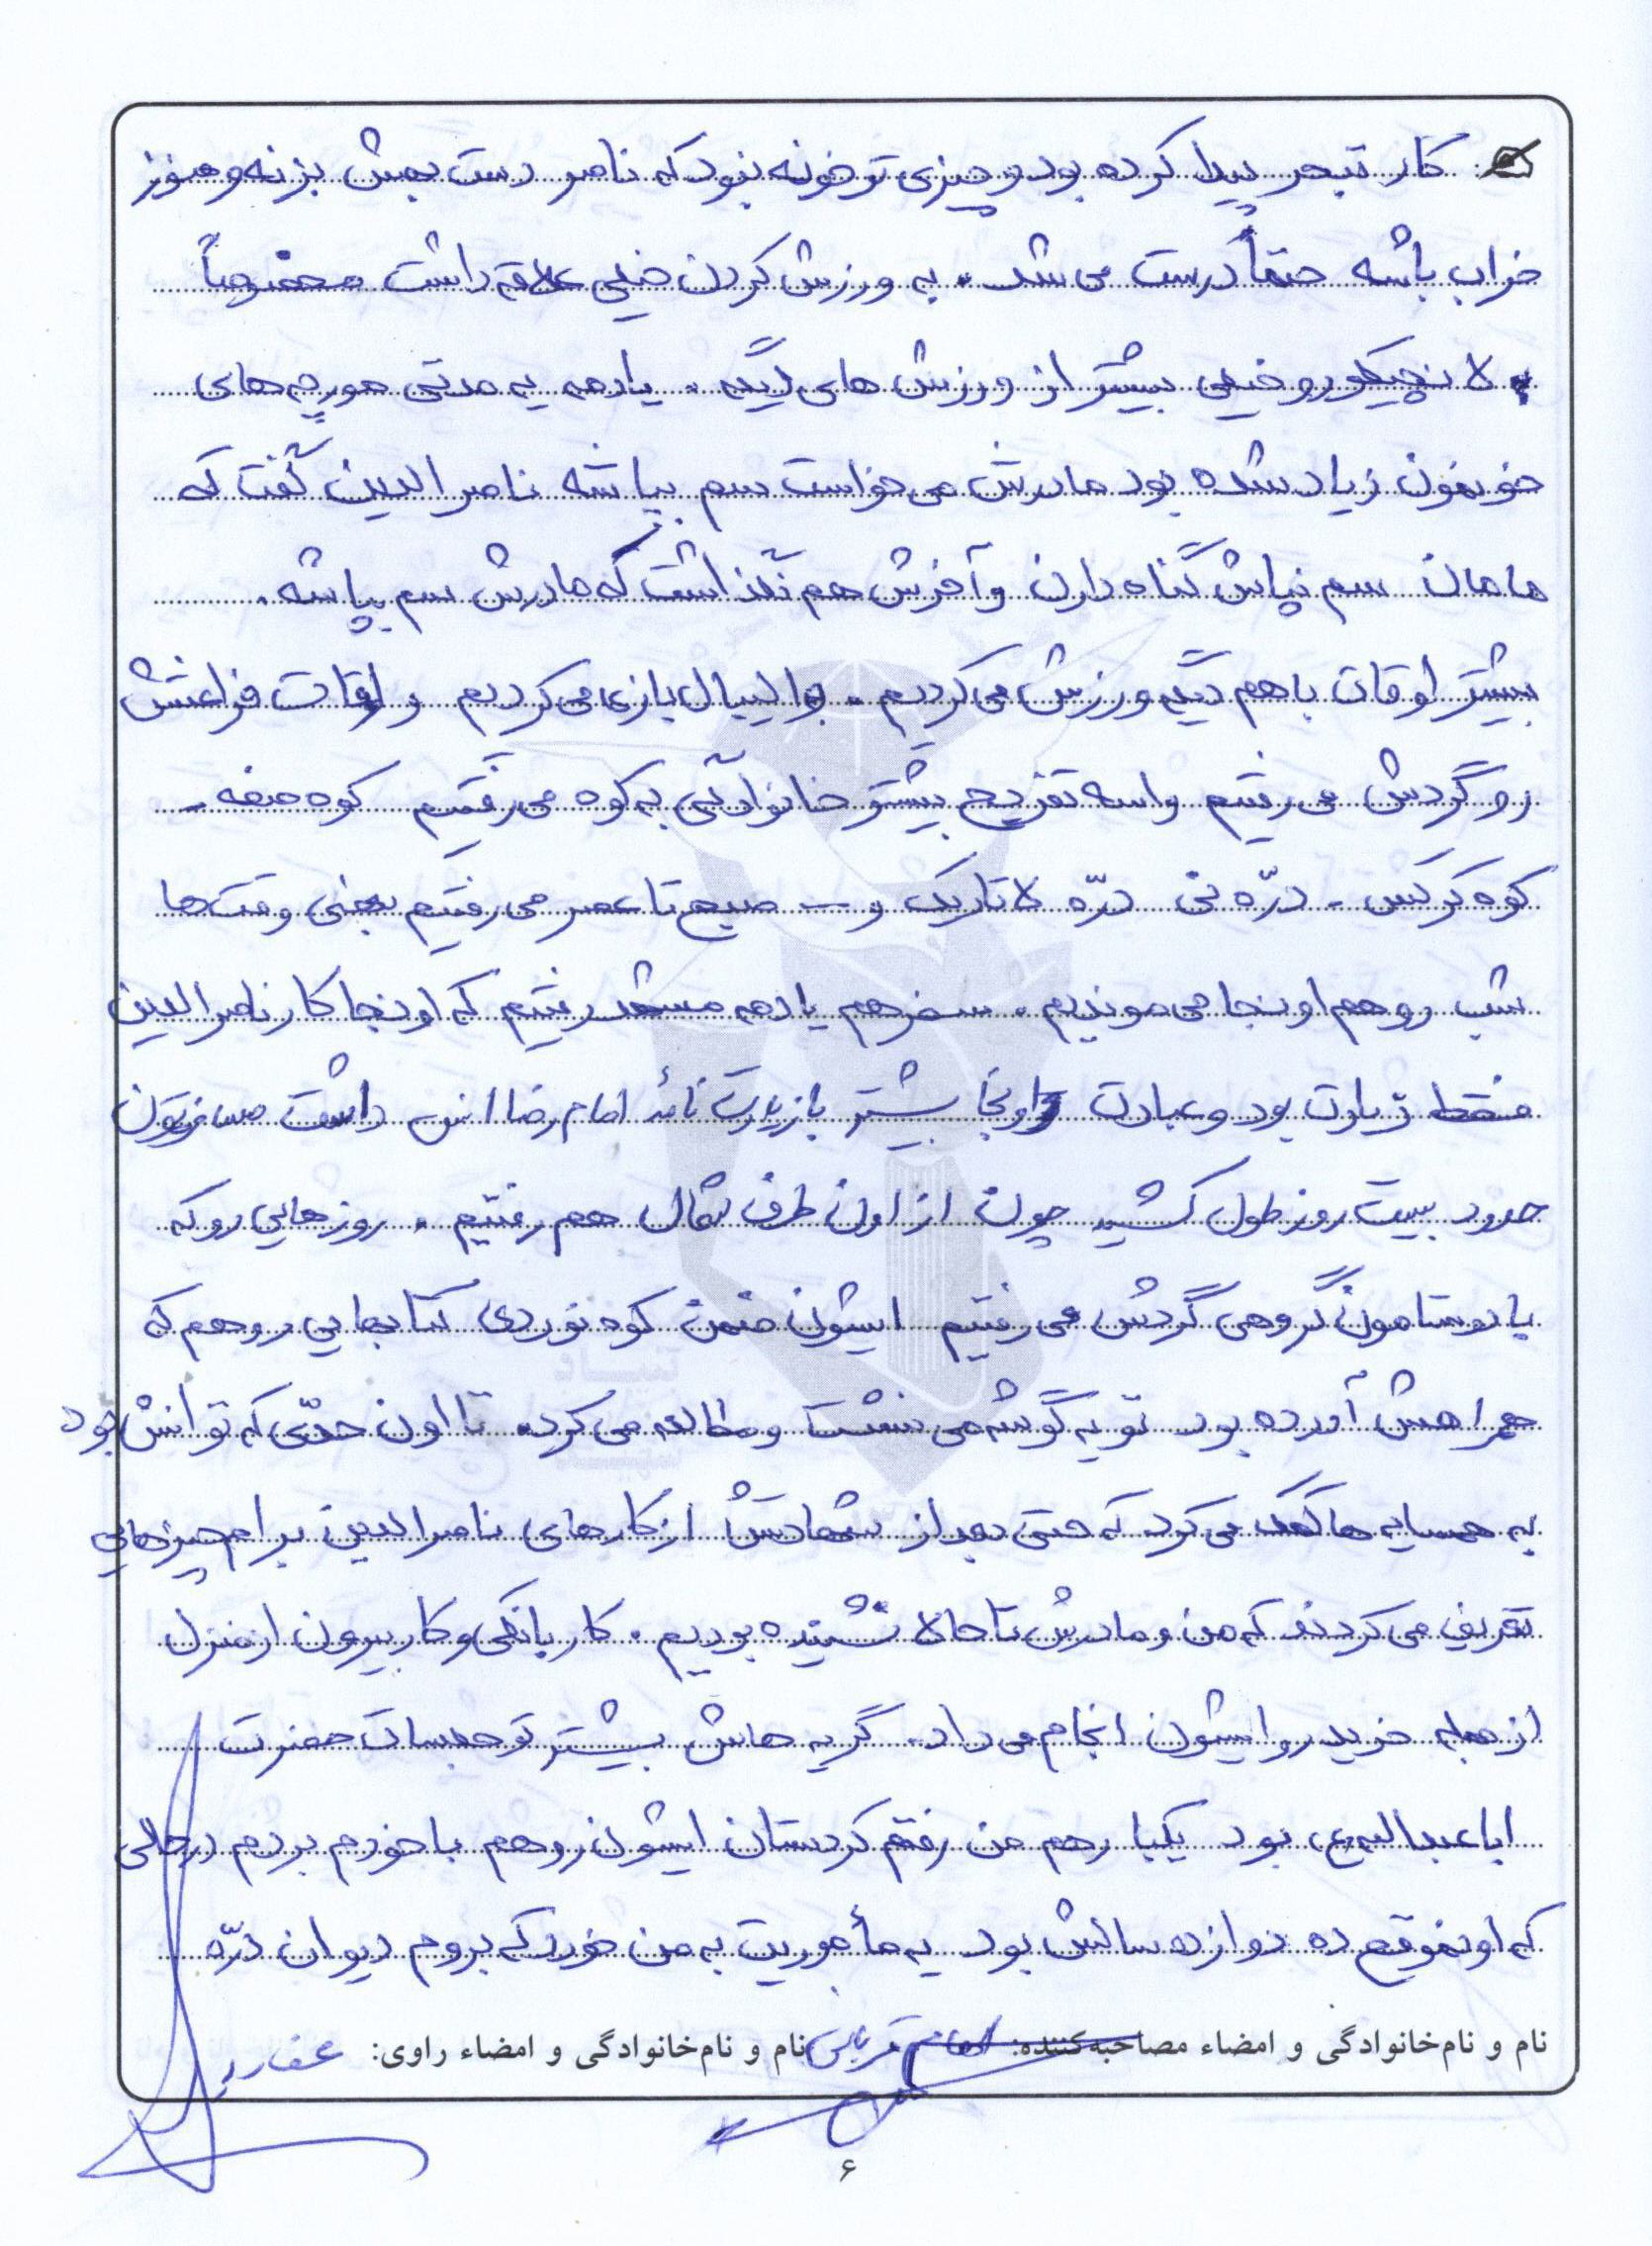 کار تبحر پیدا کرده بود و چیزی تو خونه نبود که ناصر دست بهش بزنه و هنوز
خراب باشه حتماً درست می شد. به ورزش کردن خیلی علاقه داشت مخصوصاً
لانچیکو رو خیلی بیشتر از ورزش های دیگه. یادمه یه مدتی مورچه های
خونمون زیاد شده بود مادرش می خواست سم بپاشه ناصرالدین گفت که
مامان سم نپاش گناه دارن و آخرش هم نگذاشت که مادرش سم بپاشه.
بیشتر اوقات با هم دیگه ورزش می کردیم. والیبال بازی می کردیم و اوقات فراغتش
رو گردش می رفتیم واسه تفریح بیشتر خانوادگی به کوه می رفتیم کوه صفه -
کوه کرکس - درّه نی درّه لا تاریک و ... صبح تا عصر می رفتیم بعضی وقت ها
شب رو هم اونجا می موندیم. سفر هم یادمه مشهد رفتیم که اونجا کار ناصرالدین
فقط زیارت بود و عبادت و اونجا بیشتر با زیارت نامه امام رضا انس داشت مسافرتمون
حدود بیست روز طول کشید چون از اون طرف شمال هم رفتیم. روزهایی رو که
با دوستامون گروهی گردش می رفتیم ایشون ضمن کوه نوردی کتابهایی رو هم که
همراهش آورده بود تو یه گوشه می نشست و مطالعه می کرد. تا اون حدّی که توانش بود
به همسایه ها کمک می کرد که حتی بعد از شهادتش از کارهای ناصرالدین برام چیزهایی
تعریف می کردند که من و مادرش تا حالا نشنیده بودیم. کار بانکی و کار بیرون از منزل
از جمله خرید رو ایشون انجام می داد. گریه هاش بیشتر تو جلسات حضرت
اباعبدالله (ع) بود یکبار هم من رفتم کردستان ایشون رو هم با خودم بردم در حالی
که اونموقع ده دوازده سالش بود یه مأموریت به من خورد که بروم دیوان درّه
نام و نام‌خانوادگی و امضاء مصاحبه‌کننده: نام و نام‌خانوادگی و امضاء راوی:
۶